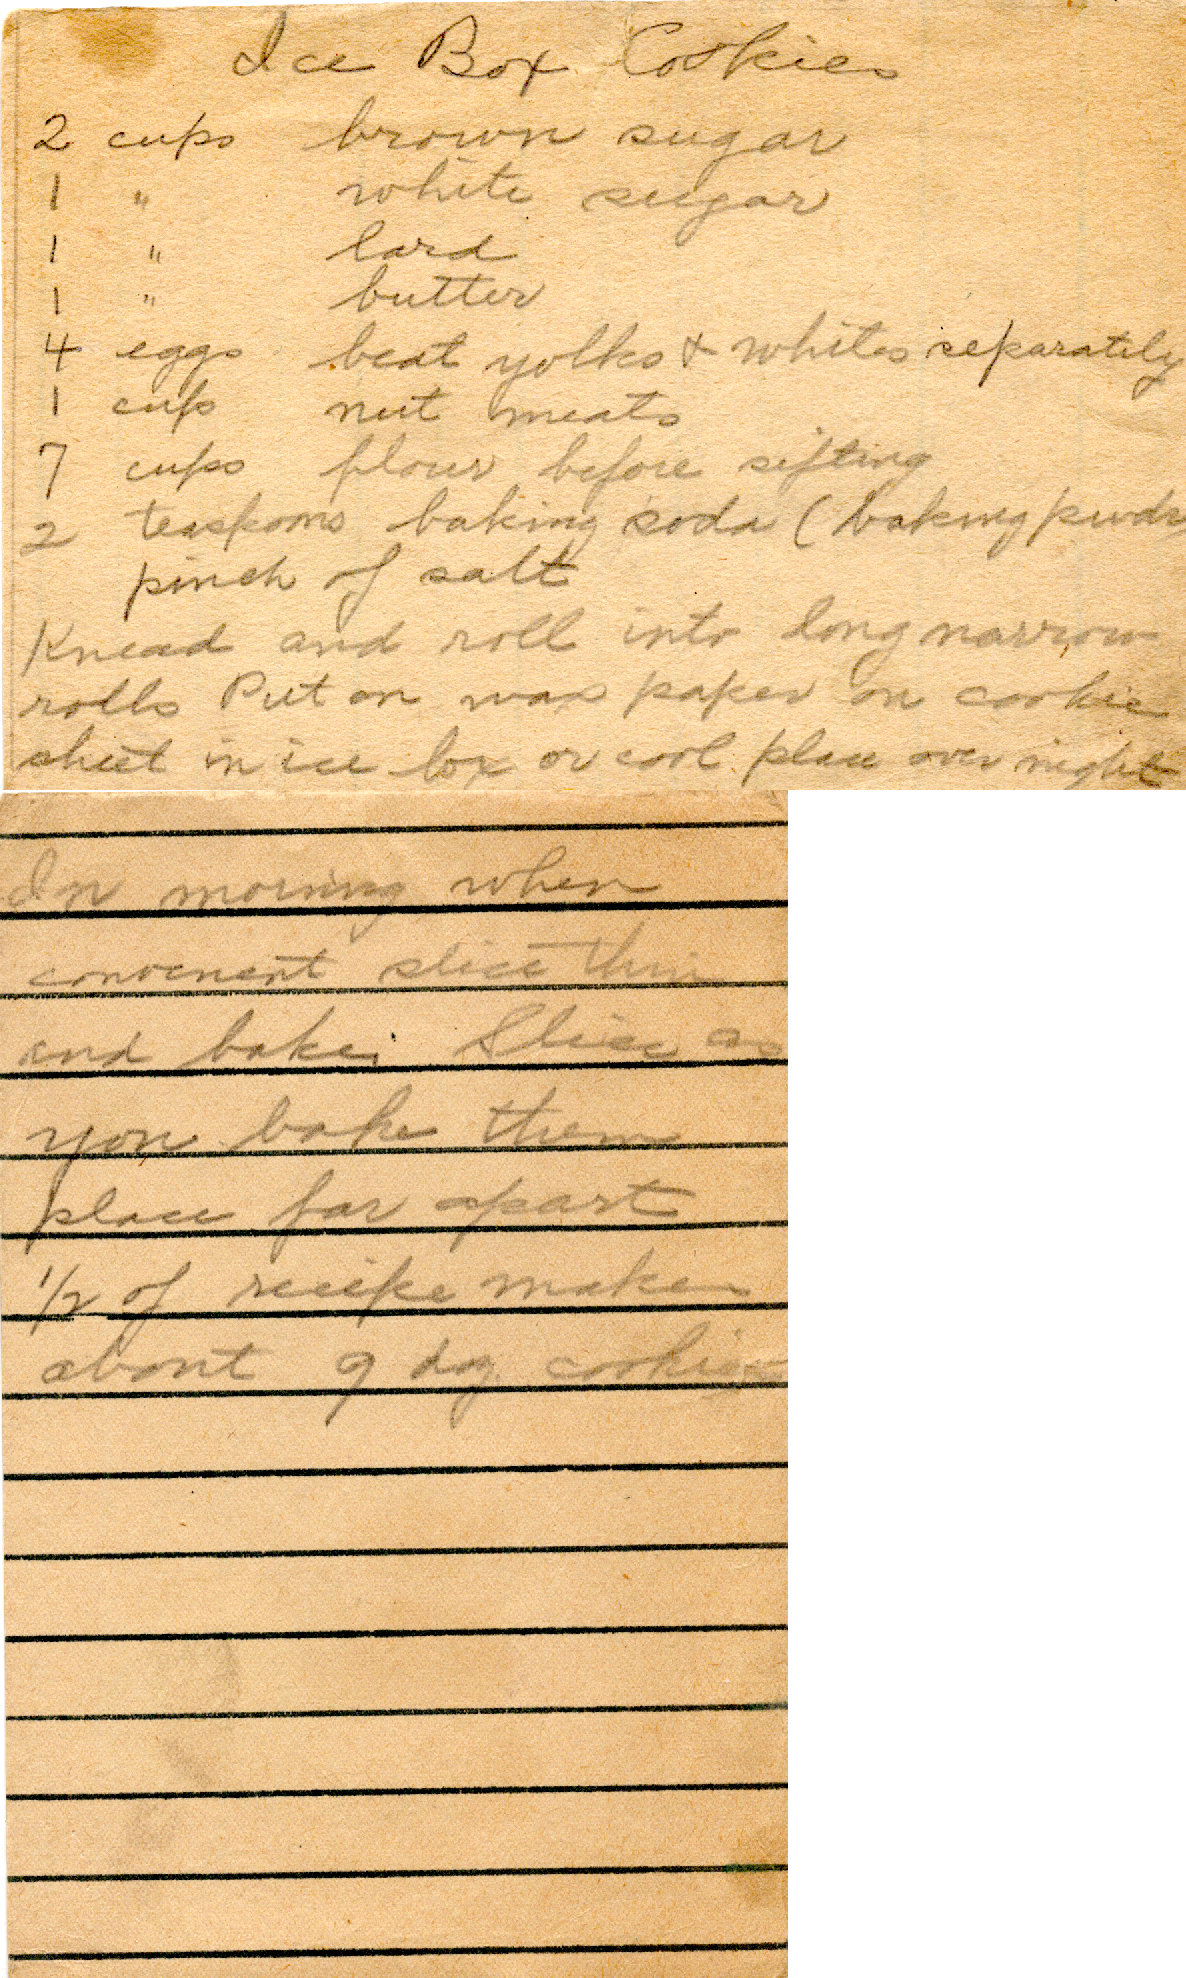 Ice Box Cookies
2 cups brown sugar
1 " white sugar
1 " lard
1 " butter
4 eggs beat yolks & whites separately
1 cup nut meats
7 cups flour before sifting
2 teaspoons baking soda (baking powdr
pinch of salt
Knead and roll into long narrow
rolls Put on wax paper on cookie
sheet in ice box or cool place over night
In morning when
convenent slice thin
and bake. Slice as
you bake them
place far apart
1/2 of recipe makes
about 9 doz. cookies